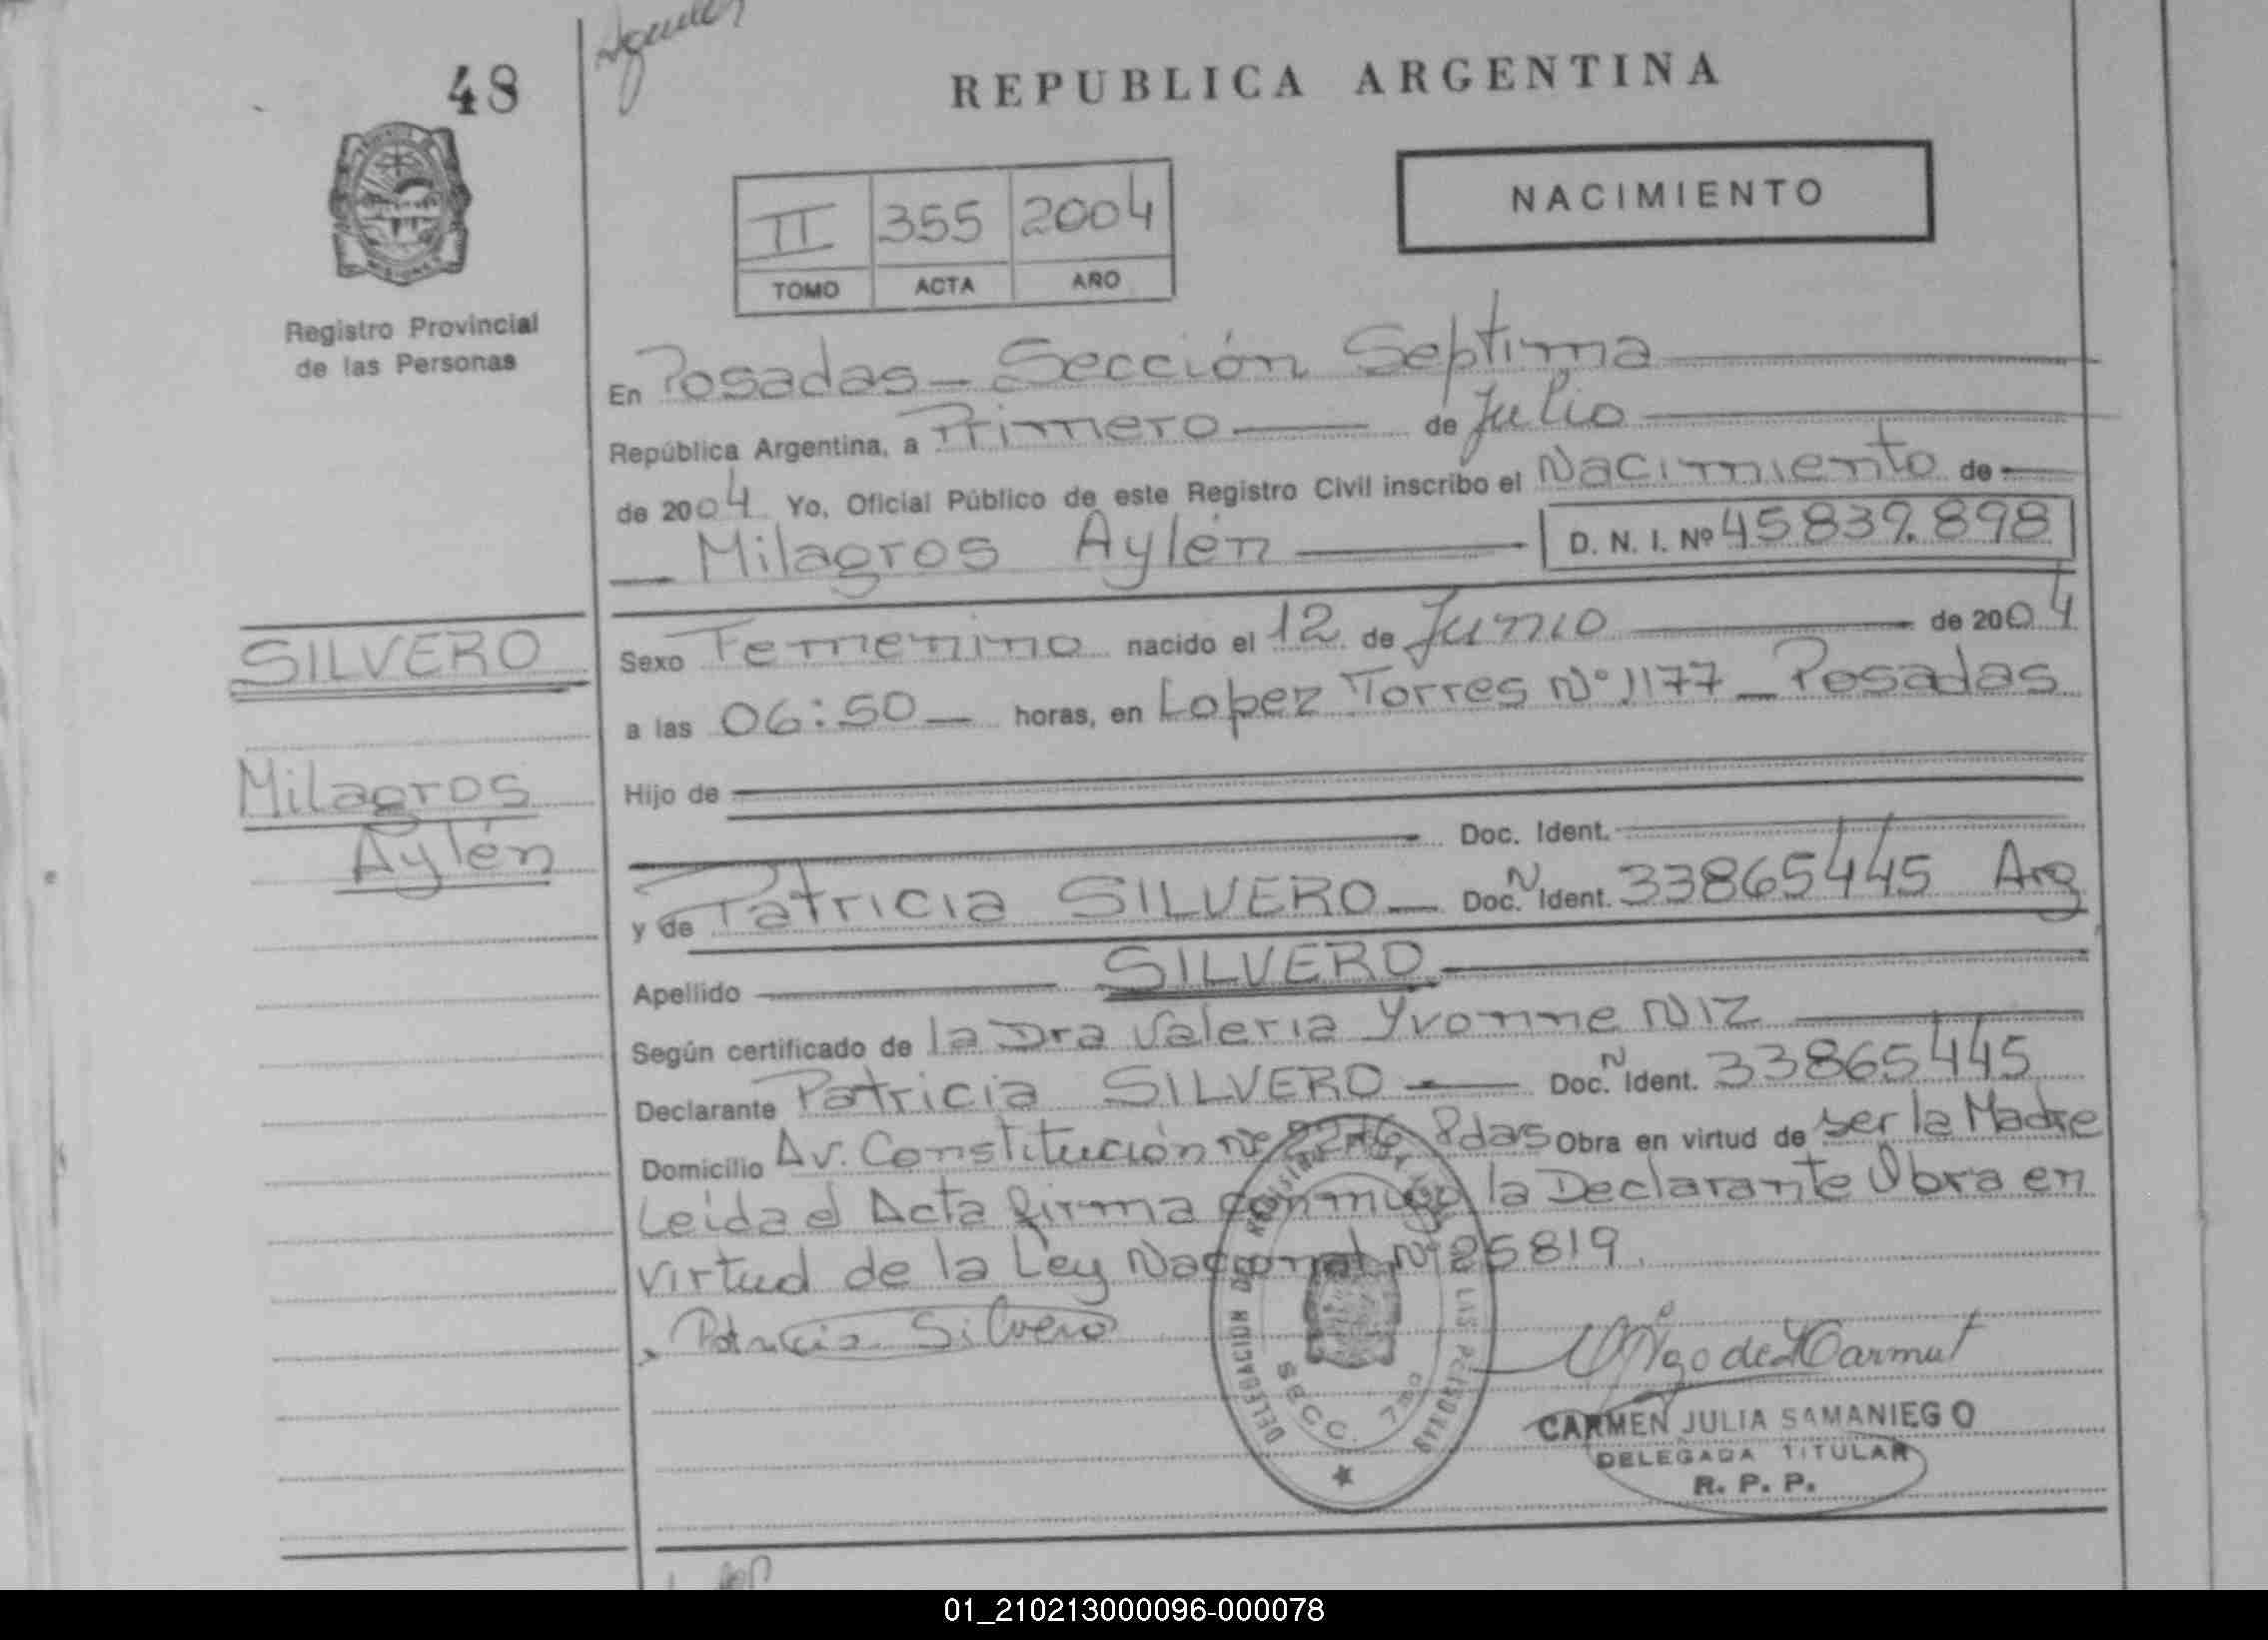 48
REPUBLICA ARGENTINA
NACIMIENTO
II 355 2004
TOMO ACTA AÑO
Registro Provincial
de las Personas
En Posadas - Sección Septima
República Argentina, a Primero de Julio
de 2004 Yo, Oficial Público de este Registro Civil inscribo el Nacimiento de
Milagros Aylén D. N. I. Nº 45839.898
SILVERO
Milagros
Aylén
Sexo Femenino nacido el 12 de Junio de 2004
a las 06:50 horas, en Lopez Torres Nº 1177 - Posadas
Hijo de
Doc. Ident.
y de Patricia SILVERO Doc. N Ident. 33865445 Arg
Apellido SILVERO
Según certificado de la Dra Valeria Yvonne NIZ
Declarante Patricia SILVERO Doc. N Ident. 33865445
Domicilio Av. Constitución Nº Pdas Obra en virtud de ser la Madre
Leida el Acta firma conmigo la Declarante Obra en
virtud de la Ley Nacional Nº 25819.
Patricia Silvero
DELEGACION DEL REGISTRO LAS PERSONAS
SECC. 7ma
CARMEN JULIA SAMANIEGO
DELEGADA TITULAR
R. P. P.
01_210213000096-000078